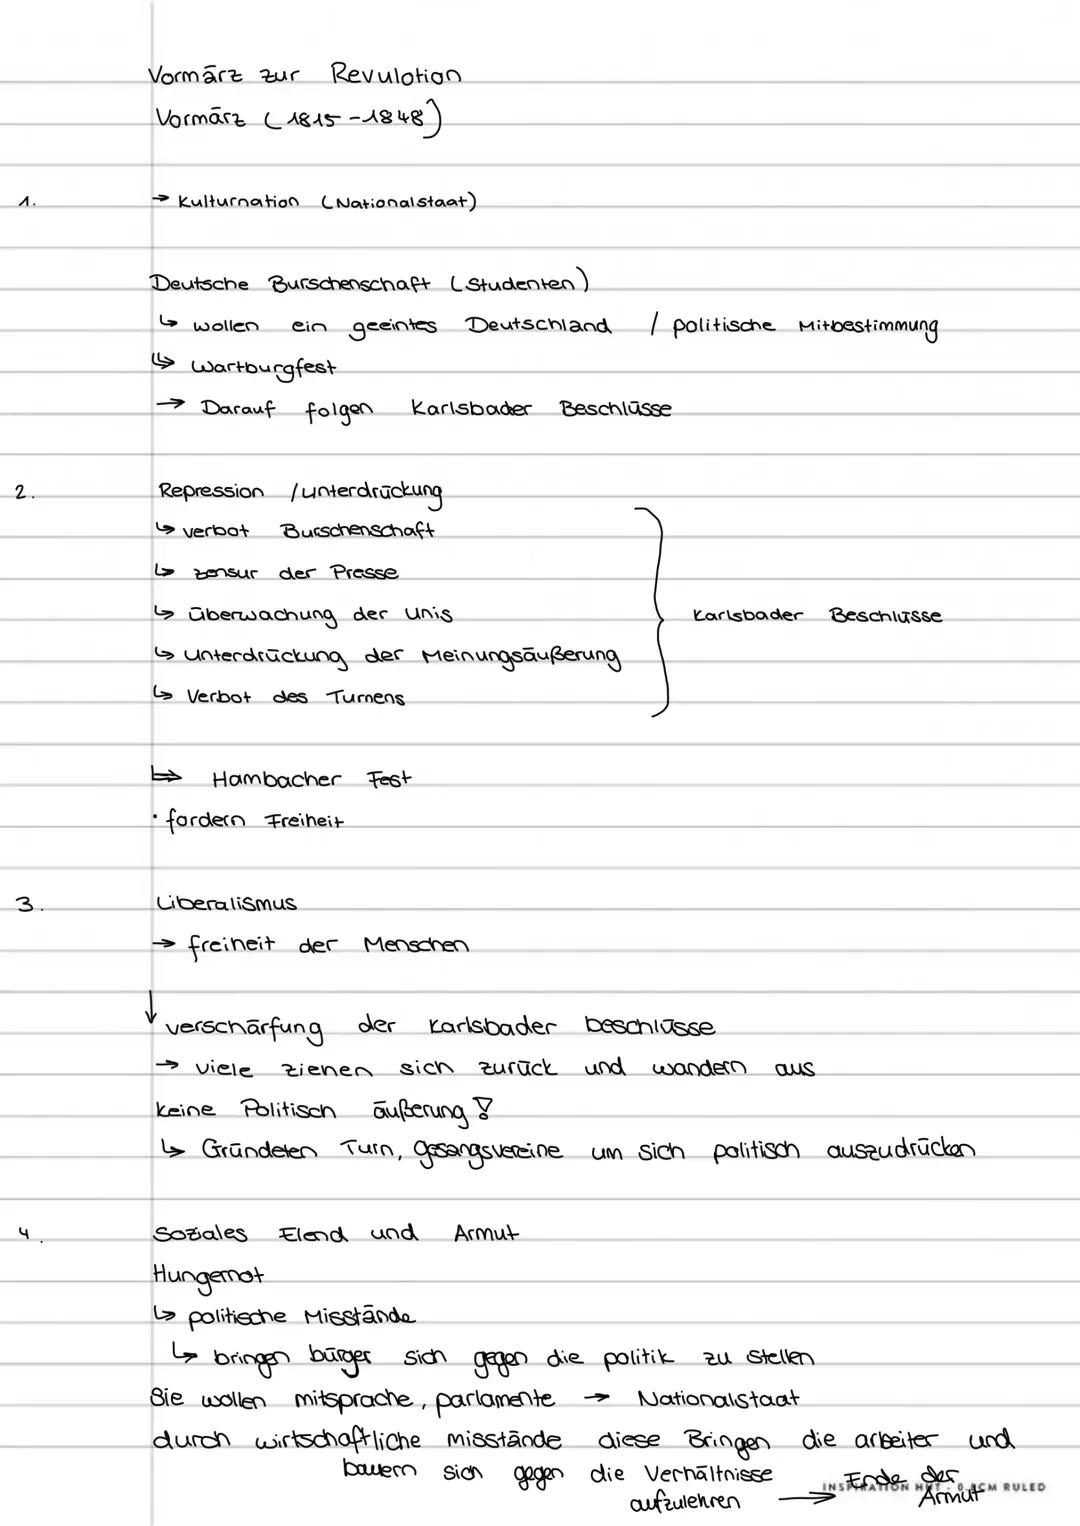 Vormärz zur Revulotion
Vormärz (1815-1848)
1. → Kulturnation (Nationalstaat)
Deutsche Burschenschaft (Studenten)
↳ wollen ein geeintes Deutschland / politische Mitbestimmung
↳ Wartburgfest
→ Darauf folgen Karlsbader Beschlüsse
2. Repression / unterdrückung
↳ verbot Burschenschaft
↳ zensur der Presse
↳ überwachung der unis
Karlsbader Beschlüsse
↳ unterdrückung der Meinungsäußerung
↳ Verbot des Turnens
↳ Hambacher Fest
· fordern Freiheit
3. Liberalismus
→ freiheit der Menschen
↓ verschärfung der Karlsbader beschlüsse
→ viele ziehen sich zurück und wandern aus
keine Politisch äußerung !
↳ Gründeten Turn, gesangsvereine um sich politisch auszudrücken
4. Soziales Elend und Armut
Hungernot
↳ politische Misstände
↳ bringen bürger sich gegen die politik zu stellen
Sie wollen mitsprache, parlamente → Nationalstaat
durch wirtschaftliche misstände diese Bringen die arbeiter und
bauern sich gegen die Verhältnisse
aufzulehren → Ende der
Armut
INSPIRATION HUT - 0.8CM RULED